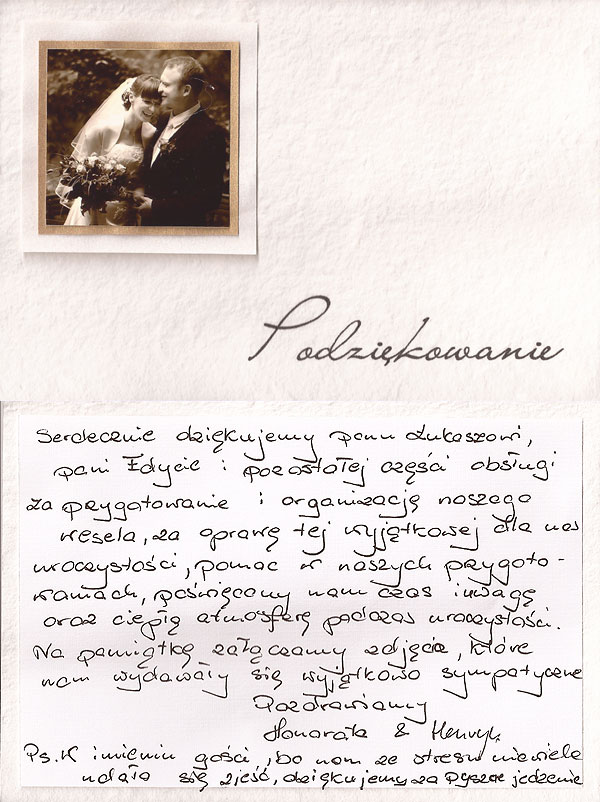 Podziękowanie
Serdecznie dziękujemy panu Łukaszowi,
pani Edycie i pozostałej części obsługi
za przygotowanie i organizację naszego
wesela, za oprawę tej wyjątkowej dla nas
uroczystości, pomoc w naszych przygoto-
waniach, poświęcony nam czas i uwagę
oraz ciepłą atmosferę podczas uroczystości.
Na pamiątkę załączamy zdjęcia, które
nam wydawały się wyjątkowo sympatyczne
Pozdrawiamy
Honorata & Henryk
Ps. W imieniu gości, bo nam ze stresu niewiele
udało się zjeść, dziękujemy za pyszne jedzenie